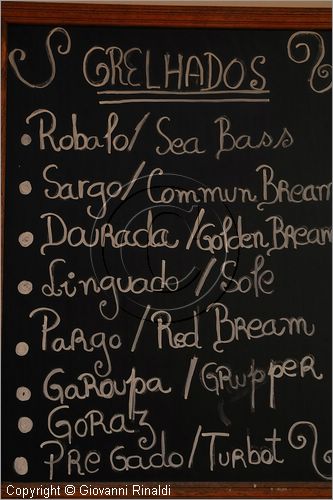 GRELHADOS
• Robalo / Sea Bass
• Sargo / Commun Bream
• Dourada / Golden Bream
• Linguado / Sole
• Pargo / Red Bream
• Garoupa / Grupper
• Goraz
• Pregado / Turbot
Copyright © Giovanni Rinaldi